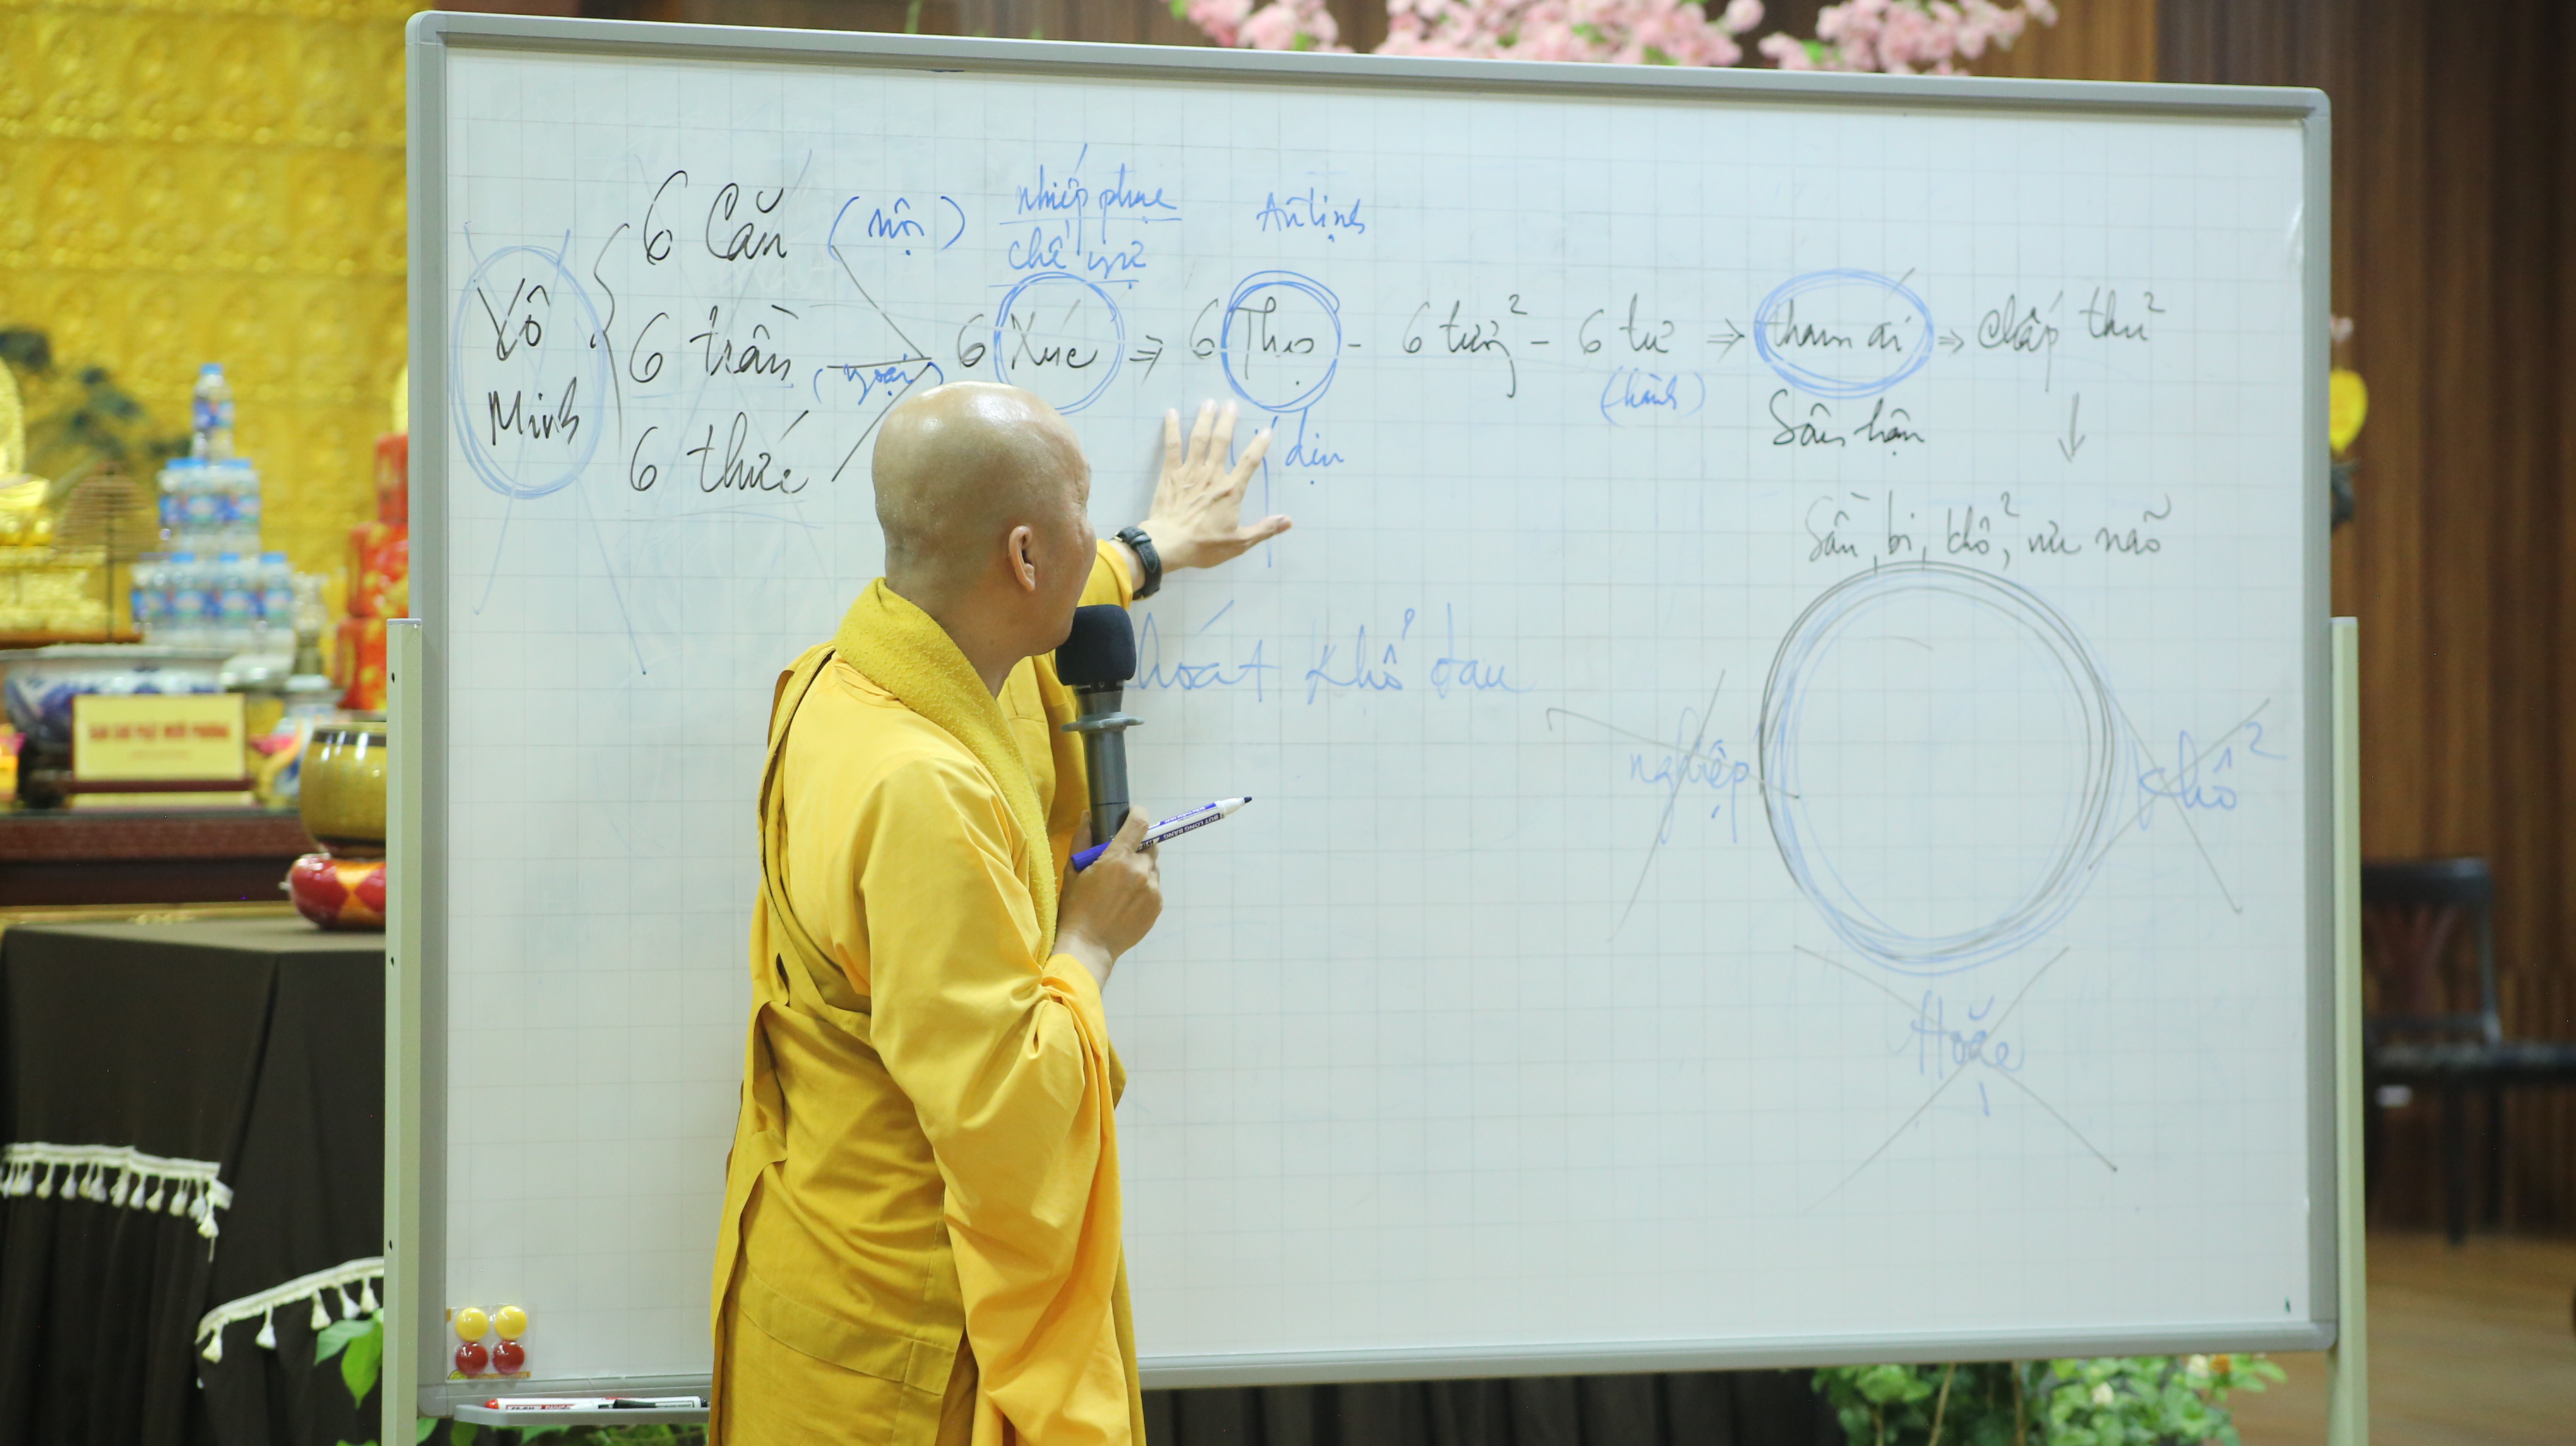 Vô
Minh
6 Căn (nội)
6 trần (ngoại)
6 thức
nhiếp phục
chế ngự
An tịnh
6 Xúc ⇒ 6 Thọ - 6 tưởng - 6 tư ⇒ tham ái ⇒ chấp thủ
(hành)
Sân hận
định
Sầu, bi, khổ, ưu não
hoát khổ đau
nghiệp
khổ
Hoặc
BÚT LÔNG BẢNG